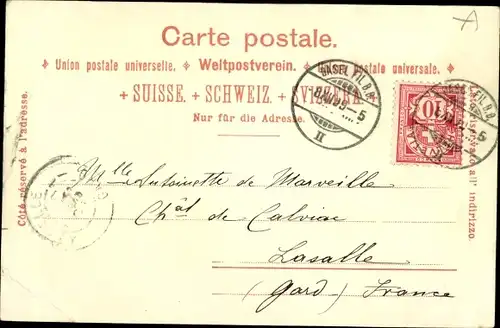 Carte postale.
Union postale universelle. Weltpostverein. universale.
SUISSE. SCHWEIZ. SVIZZERA.
Nur für die Adresse.
Côté réservé à l'adresse.
all' indirizzo.
BASEL FIL. B.B.
-5
II
10
FIL. B.B.
Mlle Antoinette de Marveille
Chât de Calviac
Lasalle
(Gard) France